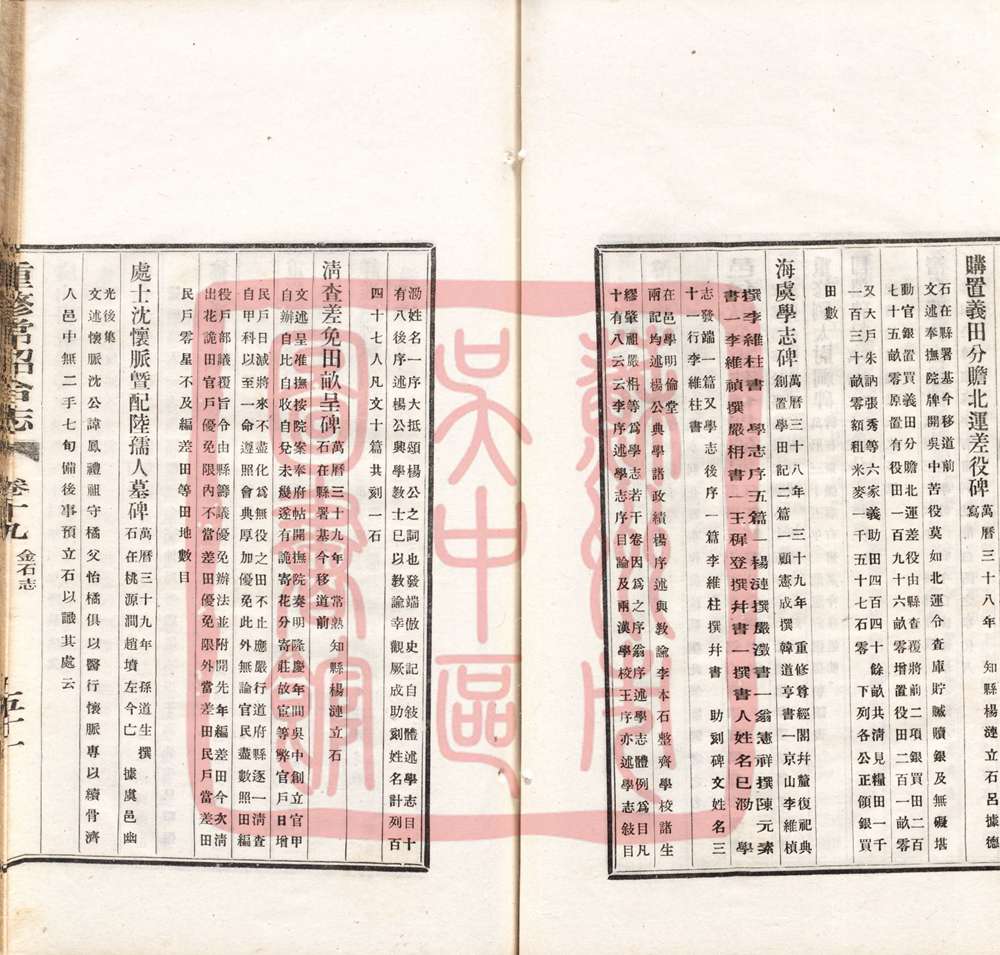 購置義田分贍北運差役碑 萬曆三十八年 知縣楊漣立石呂據德
寫
石在縣署基今移道前
文述奉撫院牌開吳中苦役莫如北運令查庫貯贓贖銀及無礙堪
動官銀置買義田分贍北運差役由縣查覆將前二項銀買田二百
七十五畝零原置有役田一百九十六畝零增置役田二百一畝零
又大戶朱訥張秀等六家義助田四百四十餘畝共清見糧田一千
一百三十畝零額租米麥一千五百十七石零 下列各公正領銀買
田數
海虞學志碑 萬曆三十八年 三十九年 重修尊經閣幷釐復祀典
創置學田記二篇 一顧憲成撰韓道亨書一京山李維楨
撰李維柱書 學志序五篇 一楊漣撰嚴澂書一翁憲祥撰陳元素
書一李維禎撰嚴枏書一王穉登撰幷書一撰書人姓名已泐 學
志發端一篇又學志後序一篇李維柱撰幷書 助刻碑文姓名三
十一行李維柱書
在邑學明倫堂
兩記均述楊公典學諸政績楊序述與教諭李本石整齊學校諸生
繆肇祖嚴枏等爲學志若干卷因爲之序翁序述學志體例爲目凡
十有八云云李序序目論及兩漢學校王序亦述學志敍目
泐姓名一序大抵頌楊公之詞也發端倣史記自敍體述學志目十
有八後序述楊公興學教士已以教諭幸觀厥成助刻姓名計列百
四十七人凡文十篇共刻一石
清查差免田畝呈碑 萬曆三十九年常熟知縣楊漣立石
石在縣署基今移道前
文述呈准撫按院案奉府帖開撫院奏明隆慶年間吳中創立官甲
自辦自比自收自兌未幾遂有詭寄花分寄莊故宦等弊官戶日增
民戶日減將來不盡化爲無役之田不止應嚴行道府縣逐一清查
自甲科以至一命遵照會典厚加優免此外無論官民盡數照田編
役戶部議覆旨令由縣籌議優免辦法並附開先年編差田今次清
出花詭田官戶優免限內不當差田優免限外當差田民戶當差田
民戶零星不及編差田等田地數目
處士沈懷脈暨配陸孺人墓碑 萬曆三十九年 孫道生撰
石在桃源澗趙墳左今亡 據虞邑幽
光後集
文述懷脈沈公諱鳳禮祖守橘父怡橘俱以醫行懷脈專以續骨濟
人邑中無二手七旬備後事預立石以識其處云
重修常昭合志 卷十九 金石志 五十一
蘇州市
吳中區
圖書館